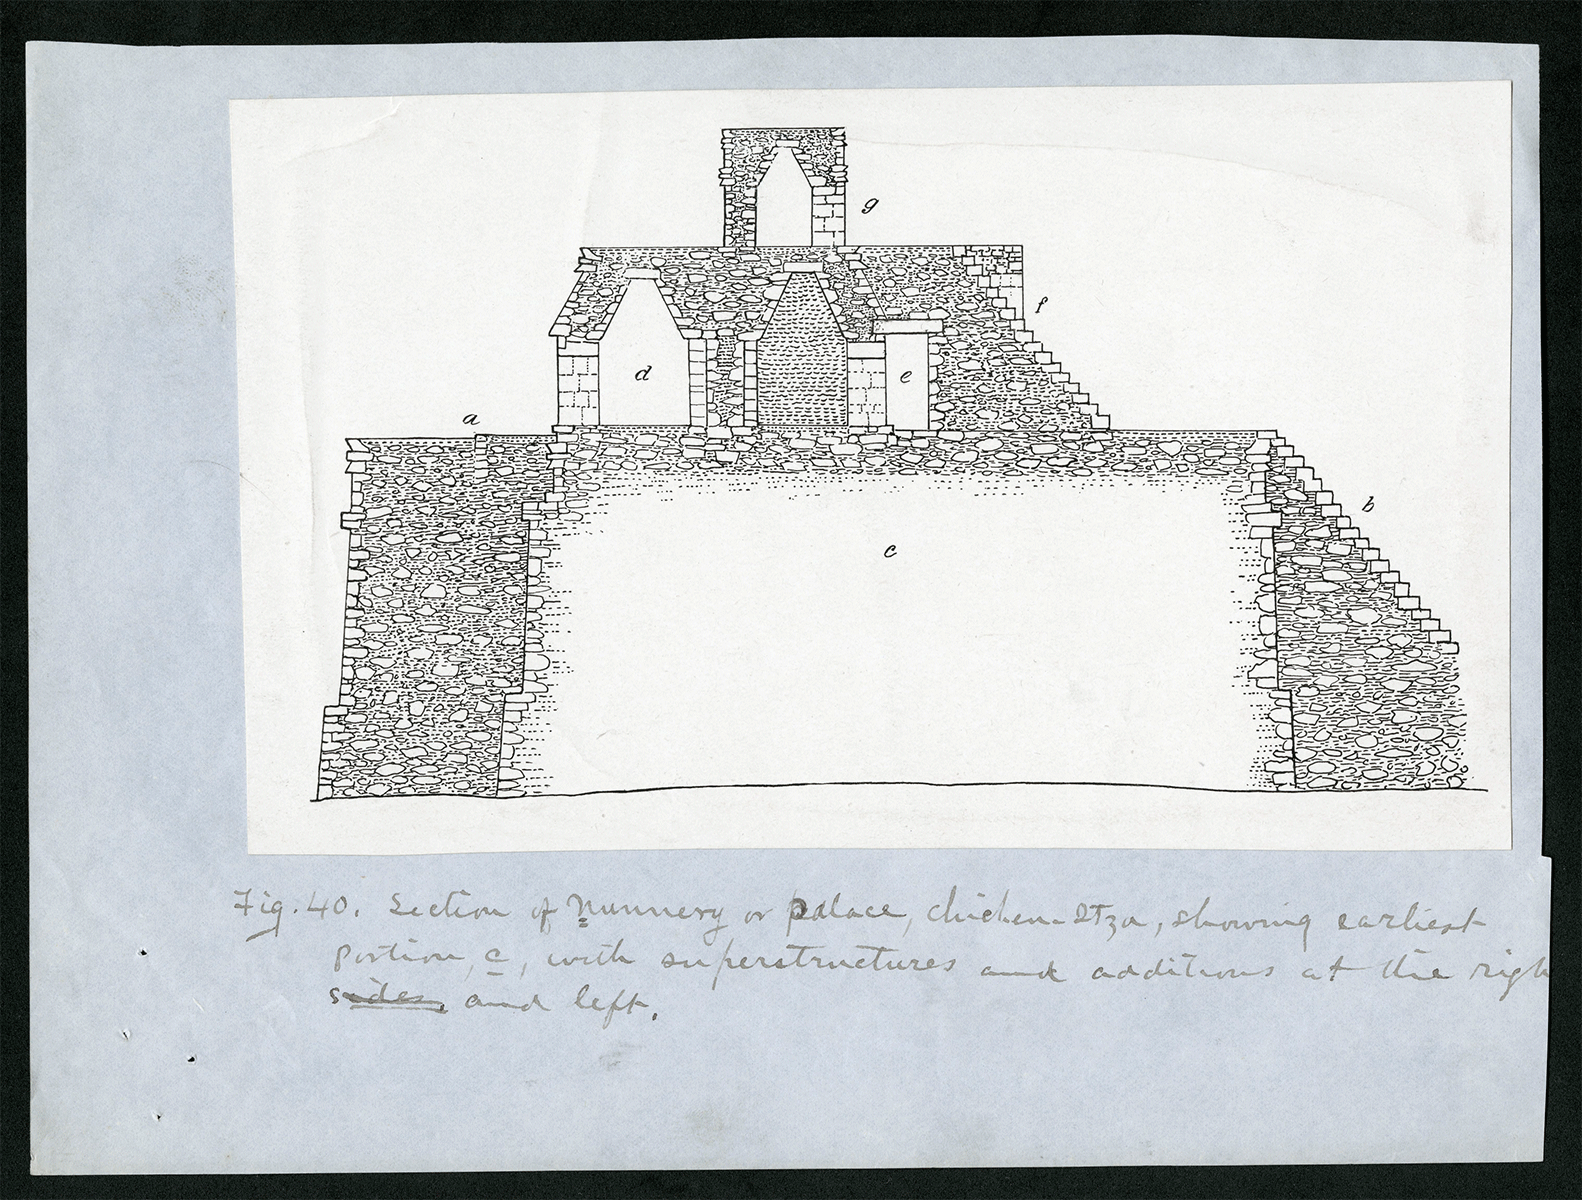 g
f
d
e
a
b
c
Fig. 40. Section of Nunnery or palace, Chichen-Itza, showing earliest
portion, c, with superstructures and additions at the righ
sides, and left.